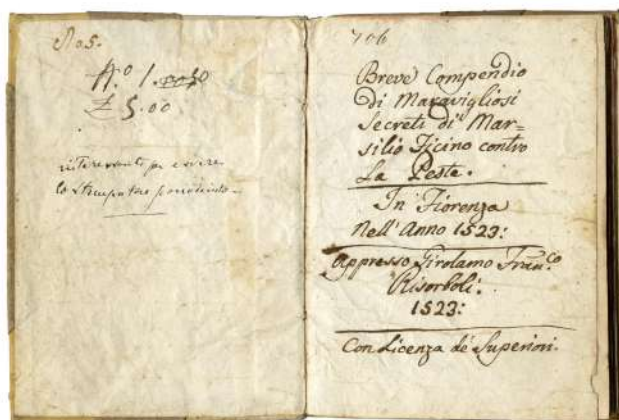 No 5.
N.o 1.
£ 5.00
interessante per essere
lo Stampatore
706
Breve Compendio
di Maravigliosi
Secreti di Mar=
silio Ficino contro
La Peste.
In Fiorenza
Nell'Anno 1523:
Appresso Girolamo Fran.co
Risorboli.
1523:
Con Licenza de Superiori.